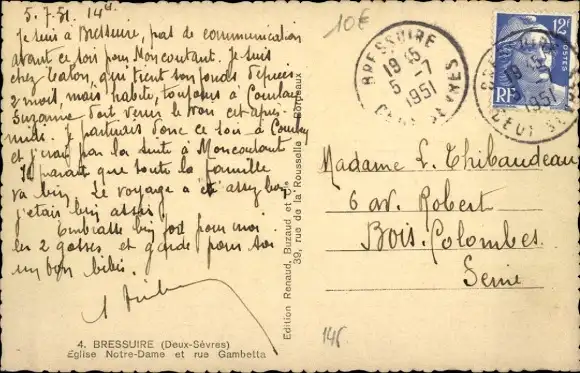 5.7.51. 14h
Je suis à Bressuire, pas de communication
avant ce soir pour Moncoutant. Je suis
chez Talon, qui tient son fonds depuis
2 mois, mais habite toujours à Courlay
Suzanne doit venir le voir cet après-
midi. Je partirai donc ce soir à Courlay
et j'irai par la suite à Moncoutant
Il parait que toute la famille
va bien. Le voyage a été assez bon
j'étais bien assis.
Embrasse bien fort pour moi
les 2 gosses et garde pour toi
un bon bébis.
4. BRESSUIRE (Deux-Sèvres)
Église Notre-Dame et rue Gambetta
Edition Renaud, Buzaud et Cie
39, rue de la Rousselle - Bordeaux
10€
BRESSUIRE
19 45
5 - 7
1951
DEUX SEVRES
12F
POSTES
RF
BRESSUIRE
19 45
5 - 7
1951
DEUX SEVRES
Madame L. Thibaudeau
6 av. Robert
Bois-Colombes
Seine